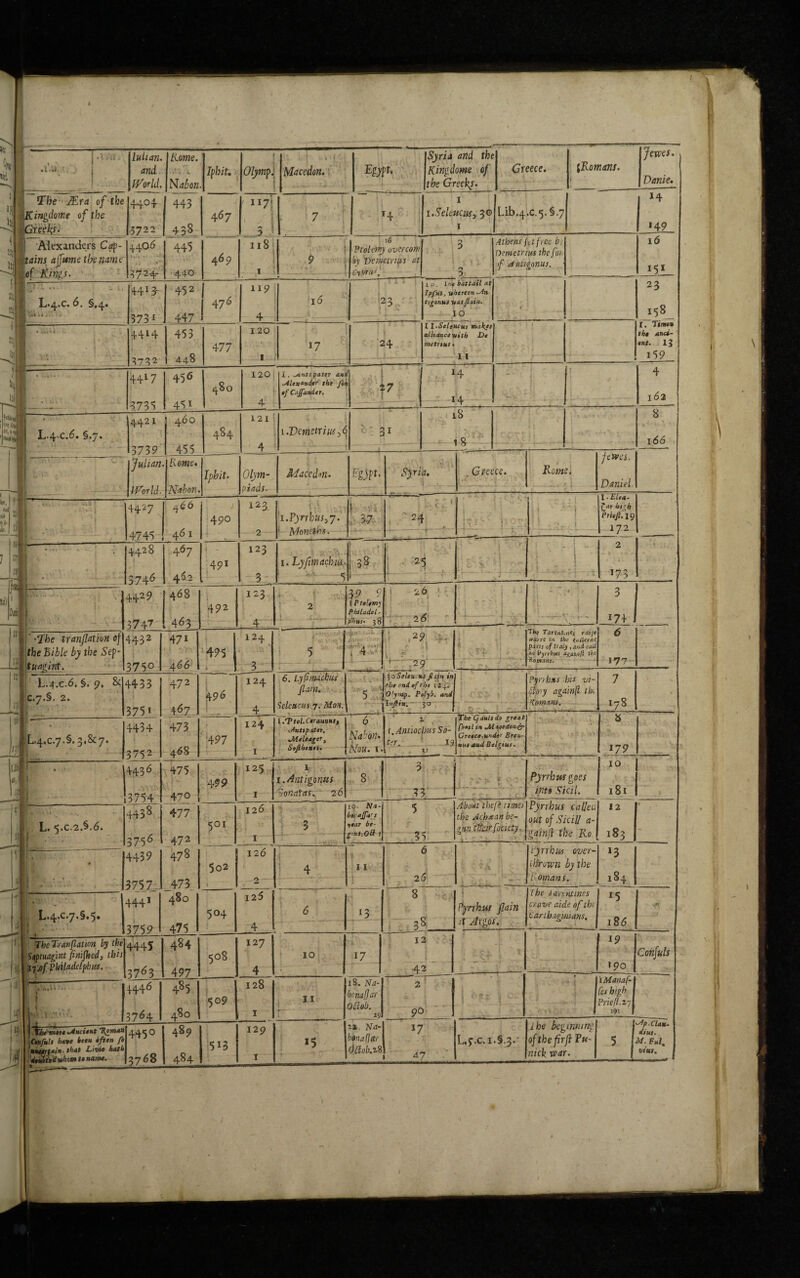 Iulian. and World. | Rome. Nabon. | Iphit. | Olymp. | Macedon. | Egypt. | Syria and the Kingdome of the Greeks. | Greece. | Romans. | Jewes. Danie.
The Æra of the Kingdome of the Greeks. | 4404 3722 | 443 438 | 467 | 117 3 | 7 | 14 | 1 1.Seleucus, 30 1 | Lib.4.c.5.§.7 | 14 149
Alexanders Captains assume the name of Kings. | 4406 3724 | 445 440 | 469 | 118 1 | 9 | 16 Ptolemy overcom by Demetrius at Cyprus. | 3 3 | Athens set free by Demetrius the son of Antigonus. | 16 151
L.4.c.6. §.4. | 4413 3731 | 452 447 | 476 | 119 4 | 16 | 23 | 10. The battail at Ipsus, whereen Antigonus was slain. 10 | 23 158
4414 3732 | 453 448 | 477 | 120 1 | 17 | 24 | 11.Seleucus makes alliance with Demetrius. 11 | 1. Timon the ancient. 13 159
4417 3735 | 456 451 | 480 | 120 4 | 1. Antipater and Alexander the sons of Cassander. | 27 | 14 14 | 4 162
L.4.c.6. §.7. | 4421 3739 | 460 455 | 484 | 121 4 | 1.Demetrius,6 | 31 | 18 18 | 8 166
Julian. World. | Rome. Nabon. | Iphit. | Olympiads. | Macedon. | Egypt. | Syria. | Greece. | Rome. | Jewes. Daniel
4427 4745 | 466 461 | 490 | 123 2 | 1.Pyrrhus,7. Moneths. | 37 | 24 | 1.Eleazar high Priest.19 172
4428 3746 | 467 462 | 491 | 123 3 | 1. Lysimachus. 5 | 38 | 25 | 2 173
4429 3747 | 468 463 | 492 | 123 4 | 2 | 39 9 1 Ptolemy Philadelphus. 38 | 26 26 | 3 174
The translation of the Bible by the Septuagint. | 4432 3750 | 471 466 | 495 | 124 3 | 5 | 4 | 29 29 | The Tarentines raise warre in the Romans. | 6 177
L.4.c.6. §. 9. & c.7.§. 2. | 4433 3751 | 472 467 | 496 | 124 4 | 6. Lysimachus slain. Seleucus 7. Mon. | 5 | 30 Seleucus slain in the end of the Olymp. Polyb. and Justin. 30 | Pyrrhus his victory against the Romans. | 7 178
L.4.c.7.§.3.&7. | 4434 3752 | 473 468 | 497 | 124 1 | 1.Ptol.Ceraunus, Antipater, Meleager, Sosthenes. | 6 Nabon. Nou. 1. | 1. Antiochus Soter. 19 | The Gauls do great spoil in Macedon & Greece, under Brennus and Belgius. | 8 179
4436 3754 | 475 470 | 499 | 125 1 | 1 1.Antigonus Gonatas. 26 | 8 | 3 33 | Pyrrhus goes into Sicil. | 10 181
L. 5.c.2.§.6. | 4438 3756 | 477 472 | 501 | 126 1 | 3 | 10. Nabonassar's year begins: Oct. | 5 35 | About these times the Achæan began their society. | Pyrrhus called out of Sicill against the Ro | 12 183
4439 3757 | 478 473 | 502 | 126 2 | 4 | 11 | 6 26 | Pyrrhus overthrown by the Romans. | 13 184
L.4.c.7.§.5. | 4441 3759 | 480 475 | 504 | 126 4 | 6 | 13 | 8 38 | Pyrrhus slain at Argos. | The Tarentines crave aide of the Carthaginians. | 15 186
The Translation by the Septuagint finished, this 17 of Philadelphus. | 4445 3763 | 484 497 | 508 | 127 4 | 10 | 17 | 12 42 | 19 190 | Consuls
4446 3764 | 485 480 | 509 | 128 1 | 11 | 18. Nabonassar Octob. 29 | 2 90 | 1 Manasses high Priest.27 191
The more Ancient Roman Consuls have been often so uncertain, that Livie hath doubted whom to name. | 4450 3768 | 489 484 | 513 | 129 1 | 15 | 22. Nabonassar Octob.28 | 17 47 | L.5.c.1.§.3. | The beginning of the first Punick war. | 5 | Ap.Claudius. M. Fulvius.